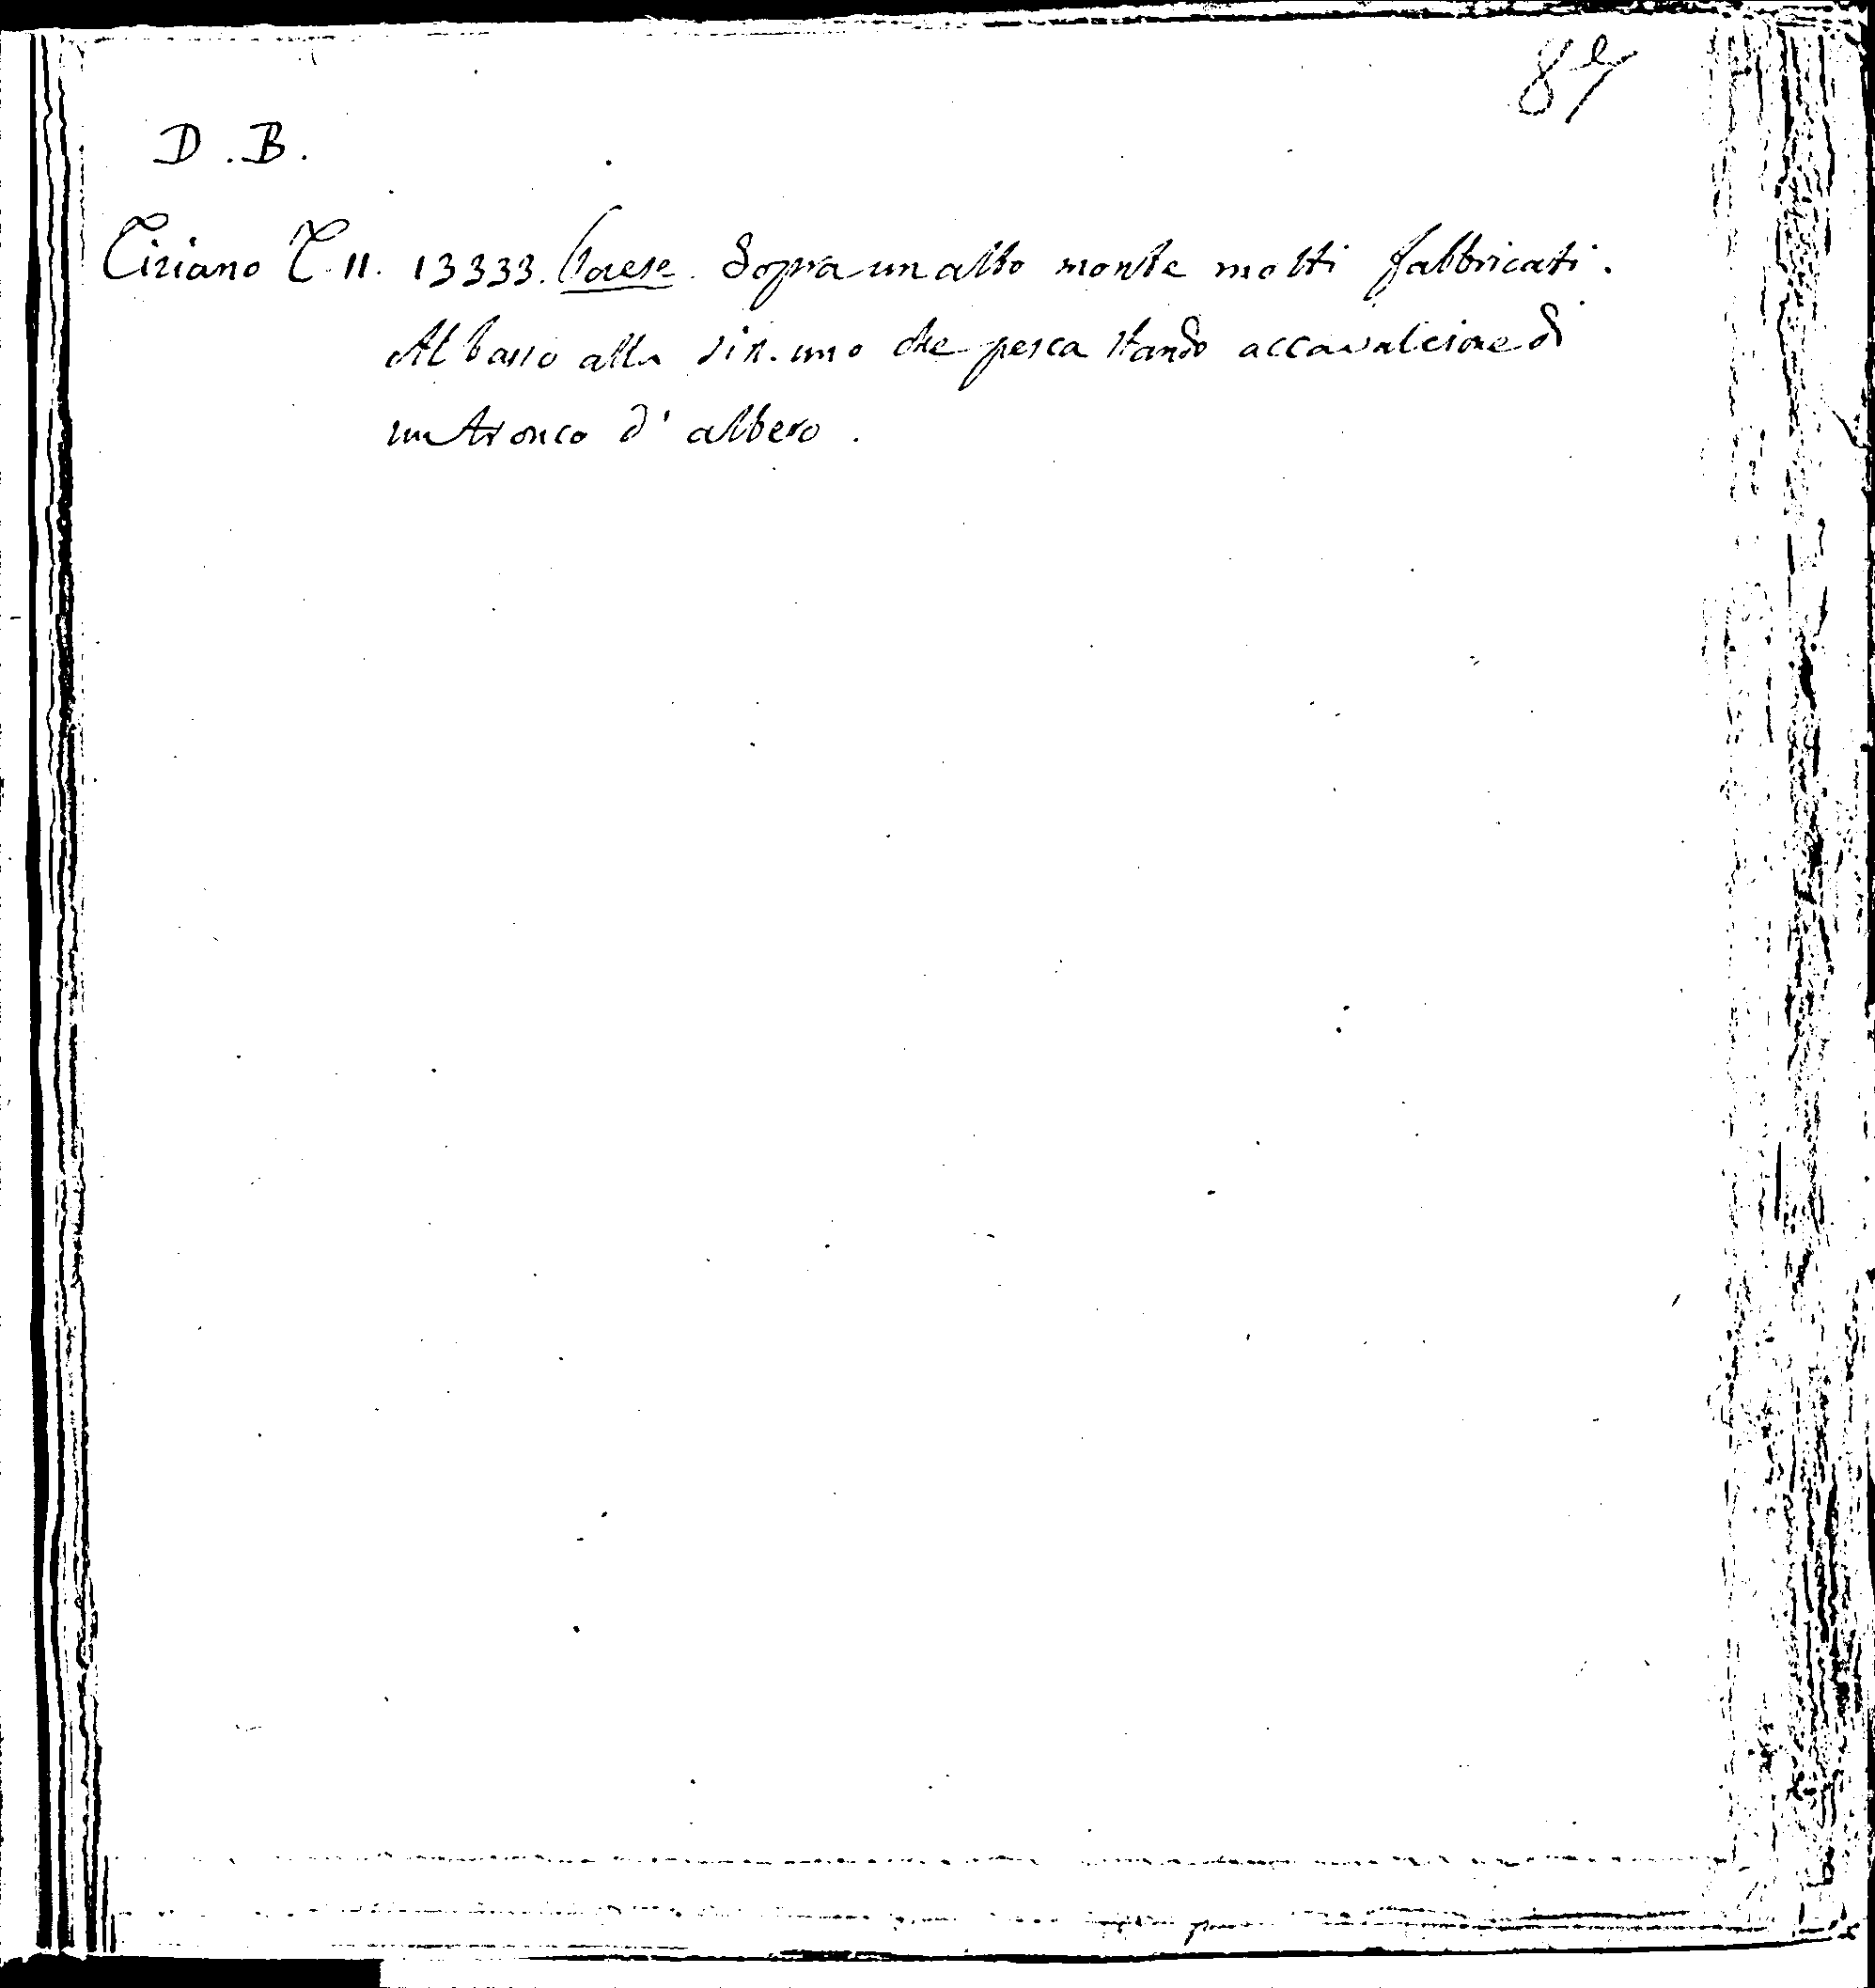 87
D. B.
Tiziano T. 11. 13333. Paese. Sopra un alto monte molti fabbricati.
Al basso alla sin. uno che pesca stando accavalcione di
un tronco d' albero.